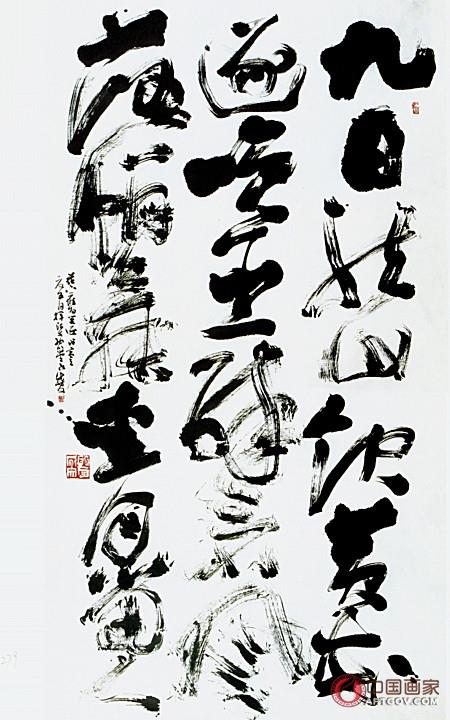 九日龍山飲黄花
笑逐臣醉看風
落帽舞愛月留人
中国画家
ARTGOV.COM